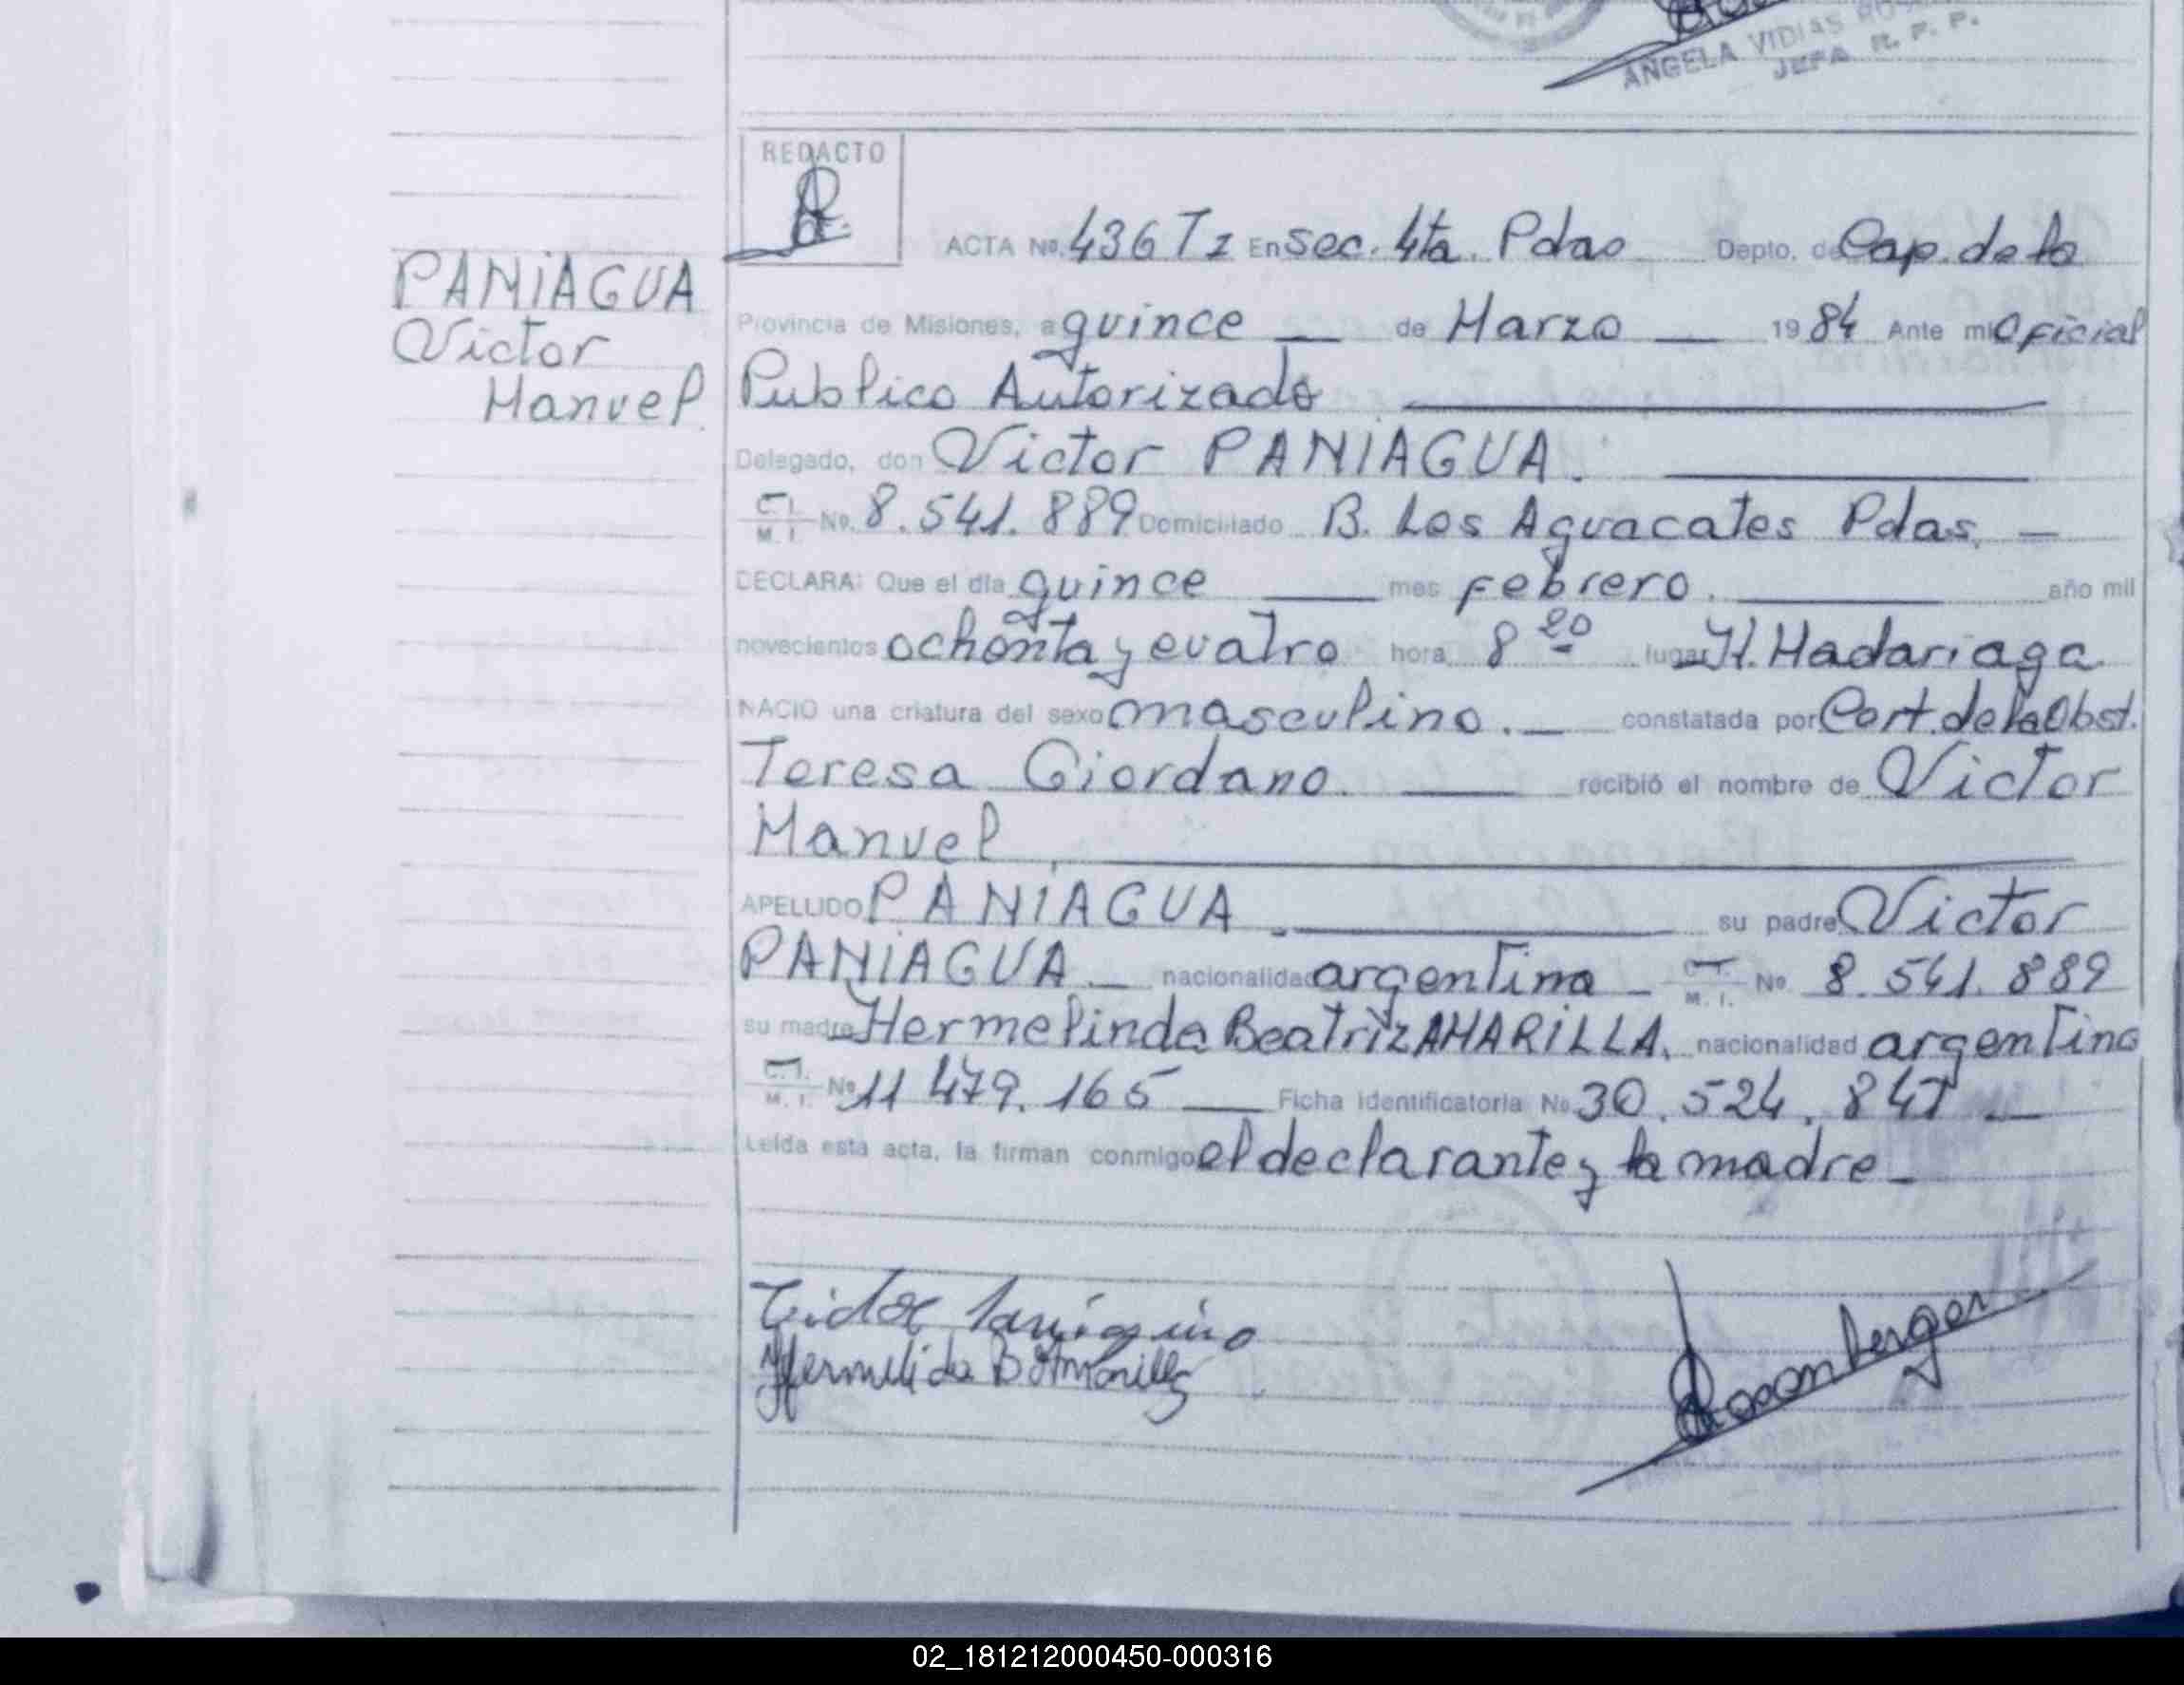 ANGELA VIDIAS
JEFA R. P. P.
REDACTO
ACTA No. 436 T1 En Sec. 4ta. Pdas Depto. de Cap. de la
PANIAGUA
Victor
Manuel.
Provincia de Misiones, a quince — de Marzo — 1984 Ante mi Oficial
Publico Autorizado
Delegado, don Victor PANIAGUA.
C.I. M. I. No. 8.541.889 Domiciliado B. Los Aguacates Pdas. —
DECLARA: Que el día quince — mes febrero. — año mil
novecientos ochenta y cuatro hora 8 20 lugar H. Madariaga
NACIO una criatura del sexo masculino. — constatada por Cert. de la Obst.
Teresa Giordano. — recibió el nombre de Victor
Manuel
APELLIDO PANIAGUA. — su padre Victor
PANIAGUA — nacionalidad argentina — C.I. M. I. No. 8.541.889
su madre Hermelinda Beatriz AMARILLA, nacionalidad argentina
C.I. M. I. No 11 479.165 — Ficha Identificatoria No 30.524.847 —
Leída esta acta, la firman conmigo el declarante y la madre —
02_181212000450-000316